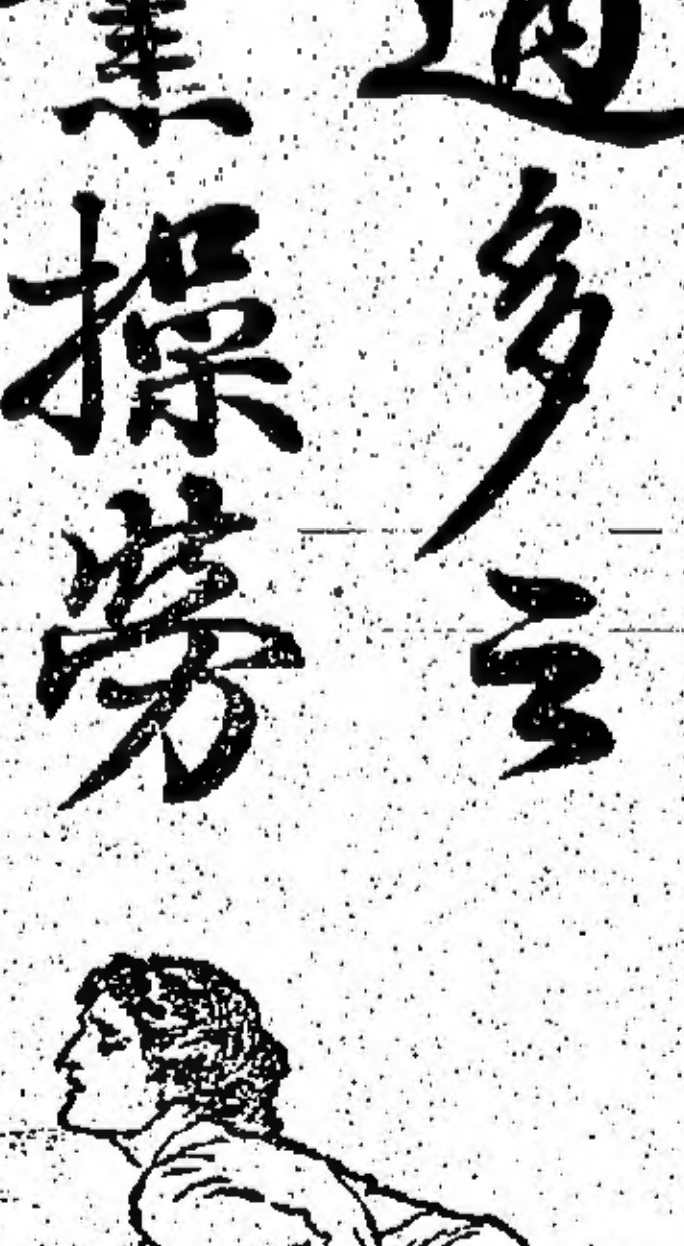 多云
操勞